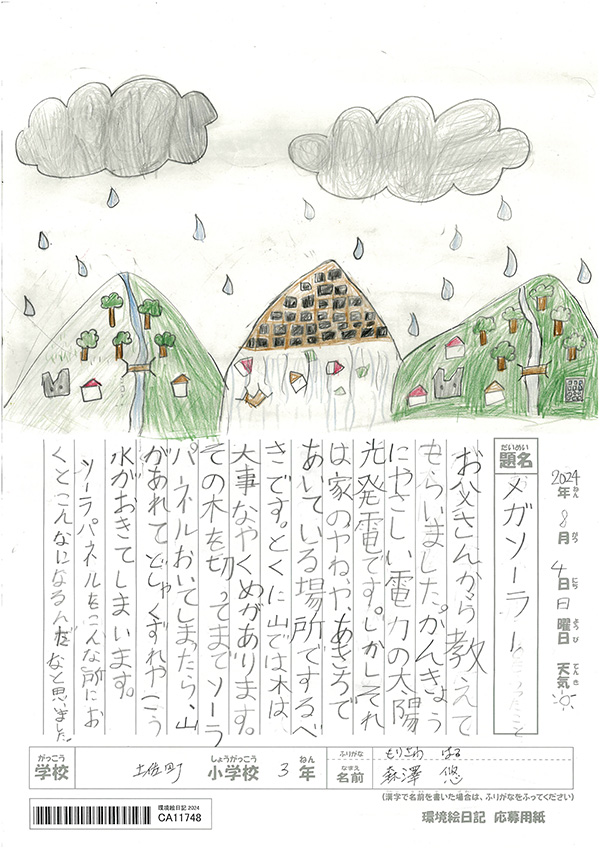 2024年ねん 8月がつ 4日にち 日曜日ようび 天気てんき
題名だいめい メガソーラー
お父さんから教えて
もらいました。かんきょう
にやさしい電力の太陽
光発電です。しかしそれ
は家のやねや、あきちで
あいている場所でするべ
きです。とくに山では木は、
大事なやくめがあります。
その木を切ってまでソーラ
パーネルおいてしまったら、山
があれてどしゃくずれやこう
水がおきてしまいます。
ソーラパネルをこんな所にお
くとこんなになるんだなと思いました。
がっこう 学校 土佐町 しょうがっこう 小学校 3 ねん 年
ふりがな もりさわ はる
なまえ 名前 森澤 悠
(漢字で名前を書いた場合は、ふりがなをふってください)
環境絵日記 2024
CA11748
環境絵日記 応募用紙